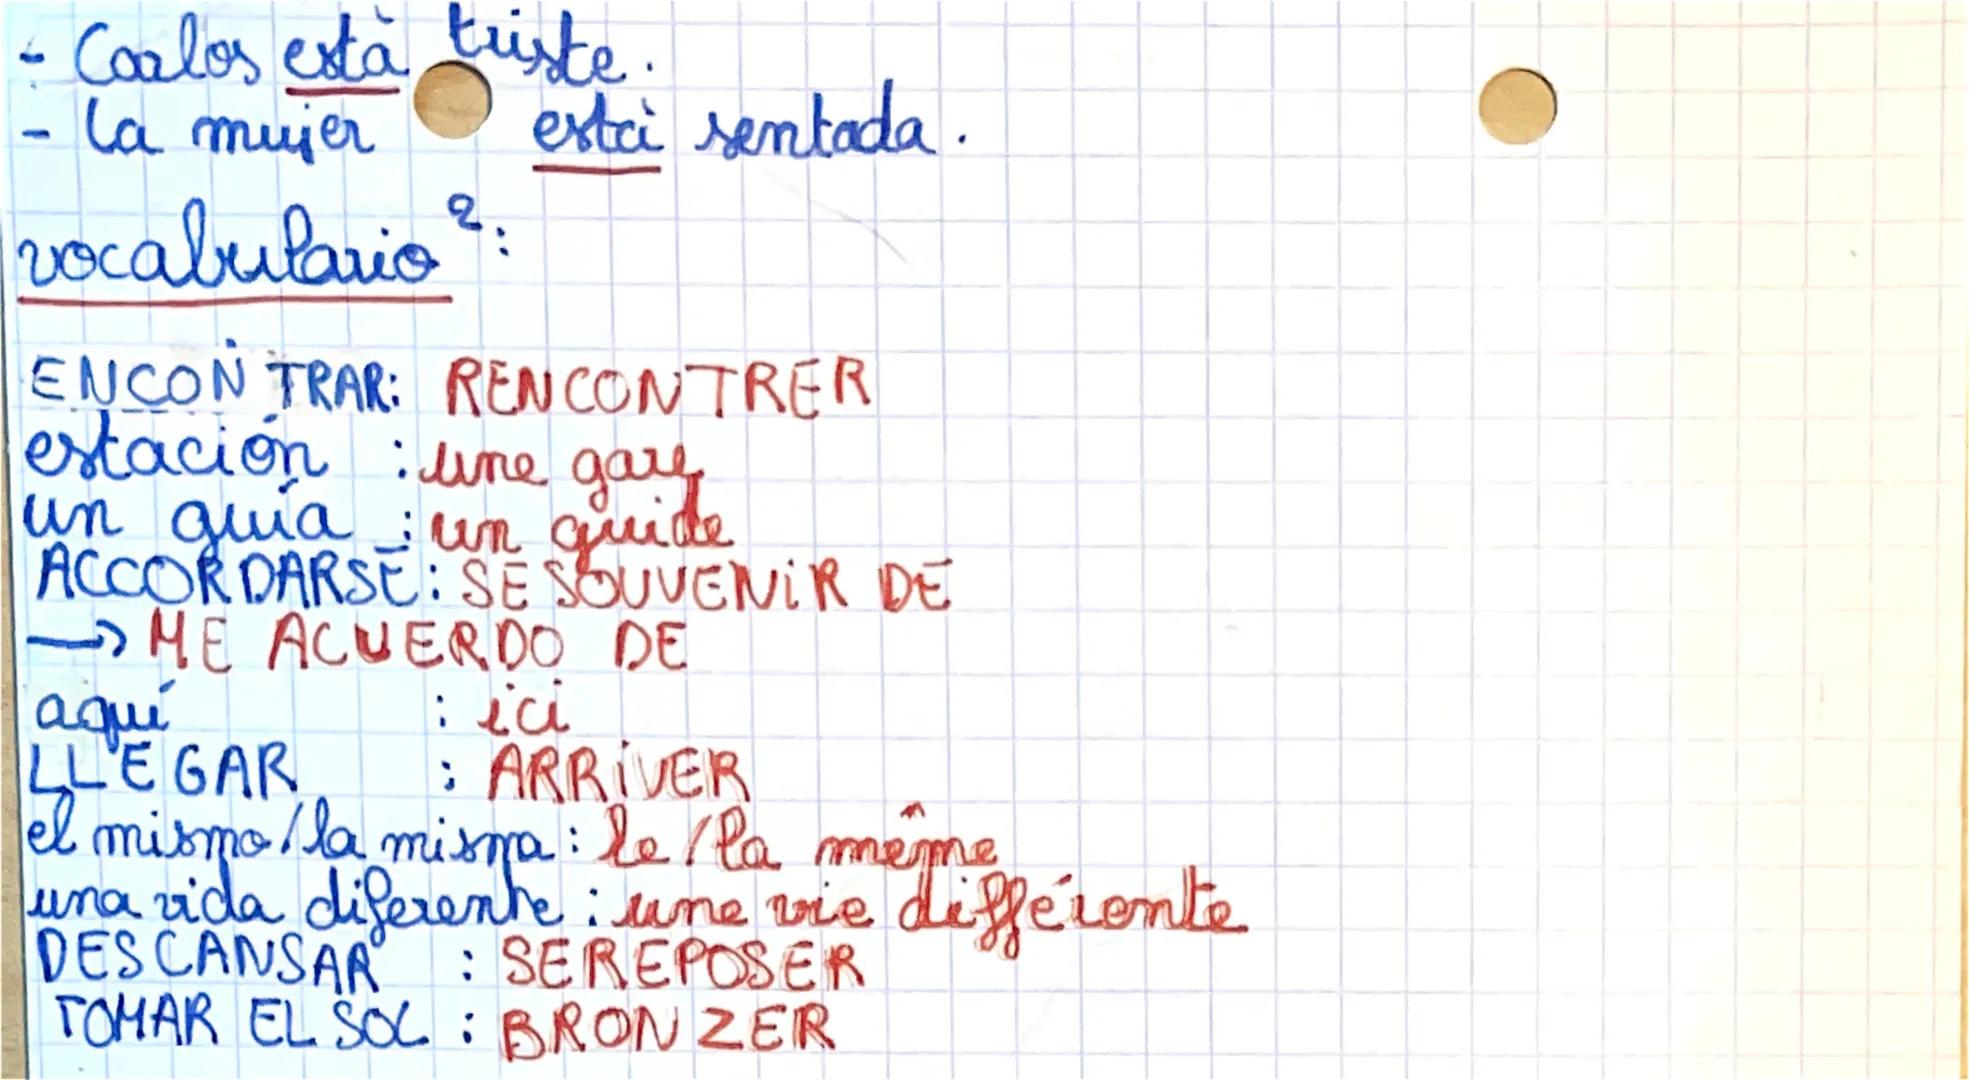 - Carlos está triste.
- la mujer está sentada.
vocabulario 2:
ENCONTRAR: RENCONTRER
estación : une gare
un guía : un guide
ACCORDARSE: SE SOUVENIR DE
→ ME ACUERDO DE
aquí : ici
LLEGAR : ARRIVER
el mismo/la misma: le/la même
una vida diferente : une vie différente
DESCANSAR : SE REPOSER
TOMAR EL SOL : BRONZER